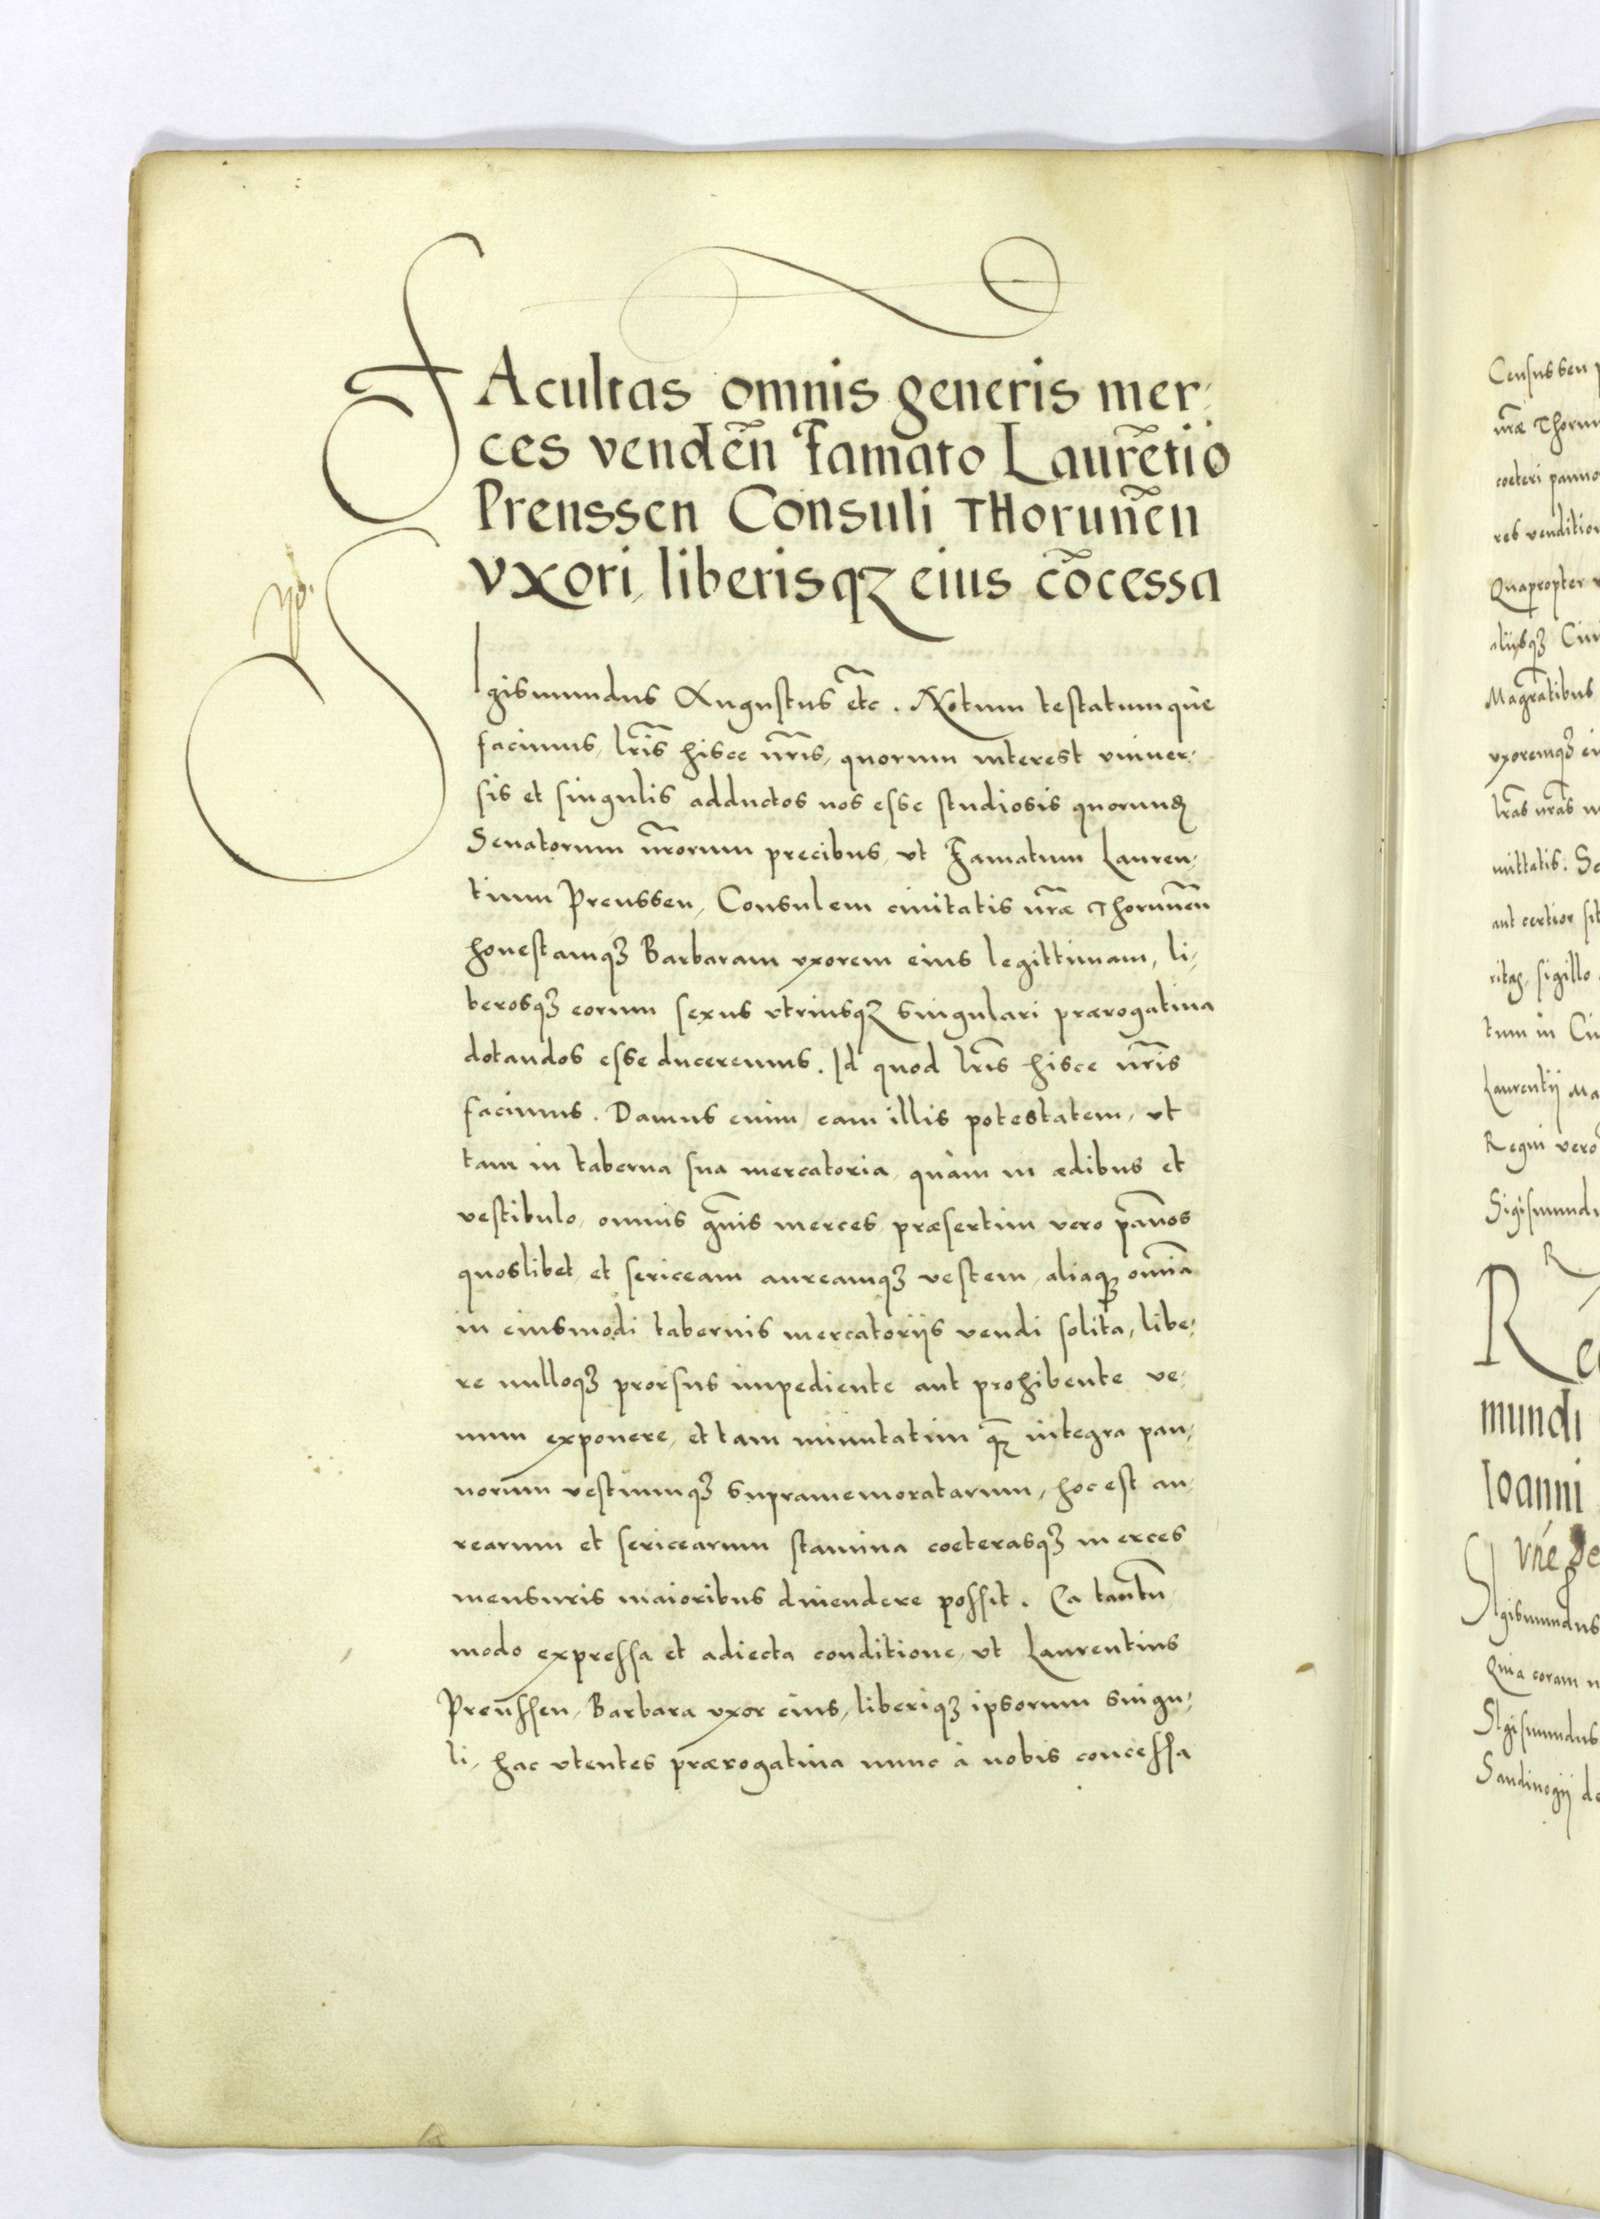 FAcultas omnis generis mer-
ces venden̄ Famato Laurētio
Preussen Consuli THorunen̄
vxori, liberisqꝫ eius cōcessa
SIgismundus Augustus etc̄. Notum testatumque
facimus, lr̄is hisce nr̄is, quorum interest vniuer-
sis et singulis adductos nos esse studiosis quorund
Senatorum nr̄orum precibus, vt Famatum Lauren-
tium Preussen, Consulem ciuitatis nr̄æ Thorunen̄
honestamqꝫ Barbaram vxorem eius legittimam, li-
berosqꝫ eorum sexus vtriusqꝫ singulari prærogatiua
dotandos esse duceremus. Id quod lr̄is hisce nr̄is
facimus. Damus enim eam illis potestatem, vt
tam in taberna sua mercatoria, quàm in ædibus et
vestibulo, omnis gn̄is merces, præsertim vero pan̄os
quoslibet, et sericeam aureamqꝫ vestem, aliaqꝫ omn̄ia
in eiusmodi tabernis mercatorijs vendi solita, libe-
re nulloqꝫ prorsus impediente aut prohibente ve-
num exponere, et tam minutatim qꝫ̄ integra pan-
norum vestiumqꝫ supramemoratarum, hoc est au-
rearum et sericearum stamina coeterasqꝫ merces
mensuris maioribus diuendere possit. Ea tantū
modo expressa et adiecta conditione, vt Laurentius
Preussen, Barbara vxor eius, liberiqꝫ ipsorum singu-
li, hac vtentes prærogatiua nunc à nobis concessa
Census seu
nr̄æ Thorun
coeteri panno
res venditio
Quapropter
alijsqꝫ Ciui
Magr̄atibus
vxoremqꝫ ei
lr̄as nr̄as
mittatis. Se
aut certior sit
sigillo
tum in Ci
Laurentij Ma
Regni vero
Sigismund
R
Re
mundi
Ioanni
SIgismundus
Quia coram n
SIgismundus
Sandiuogij de